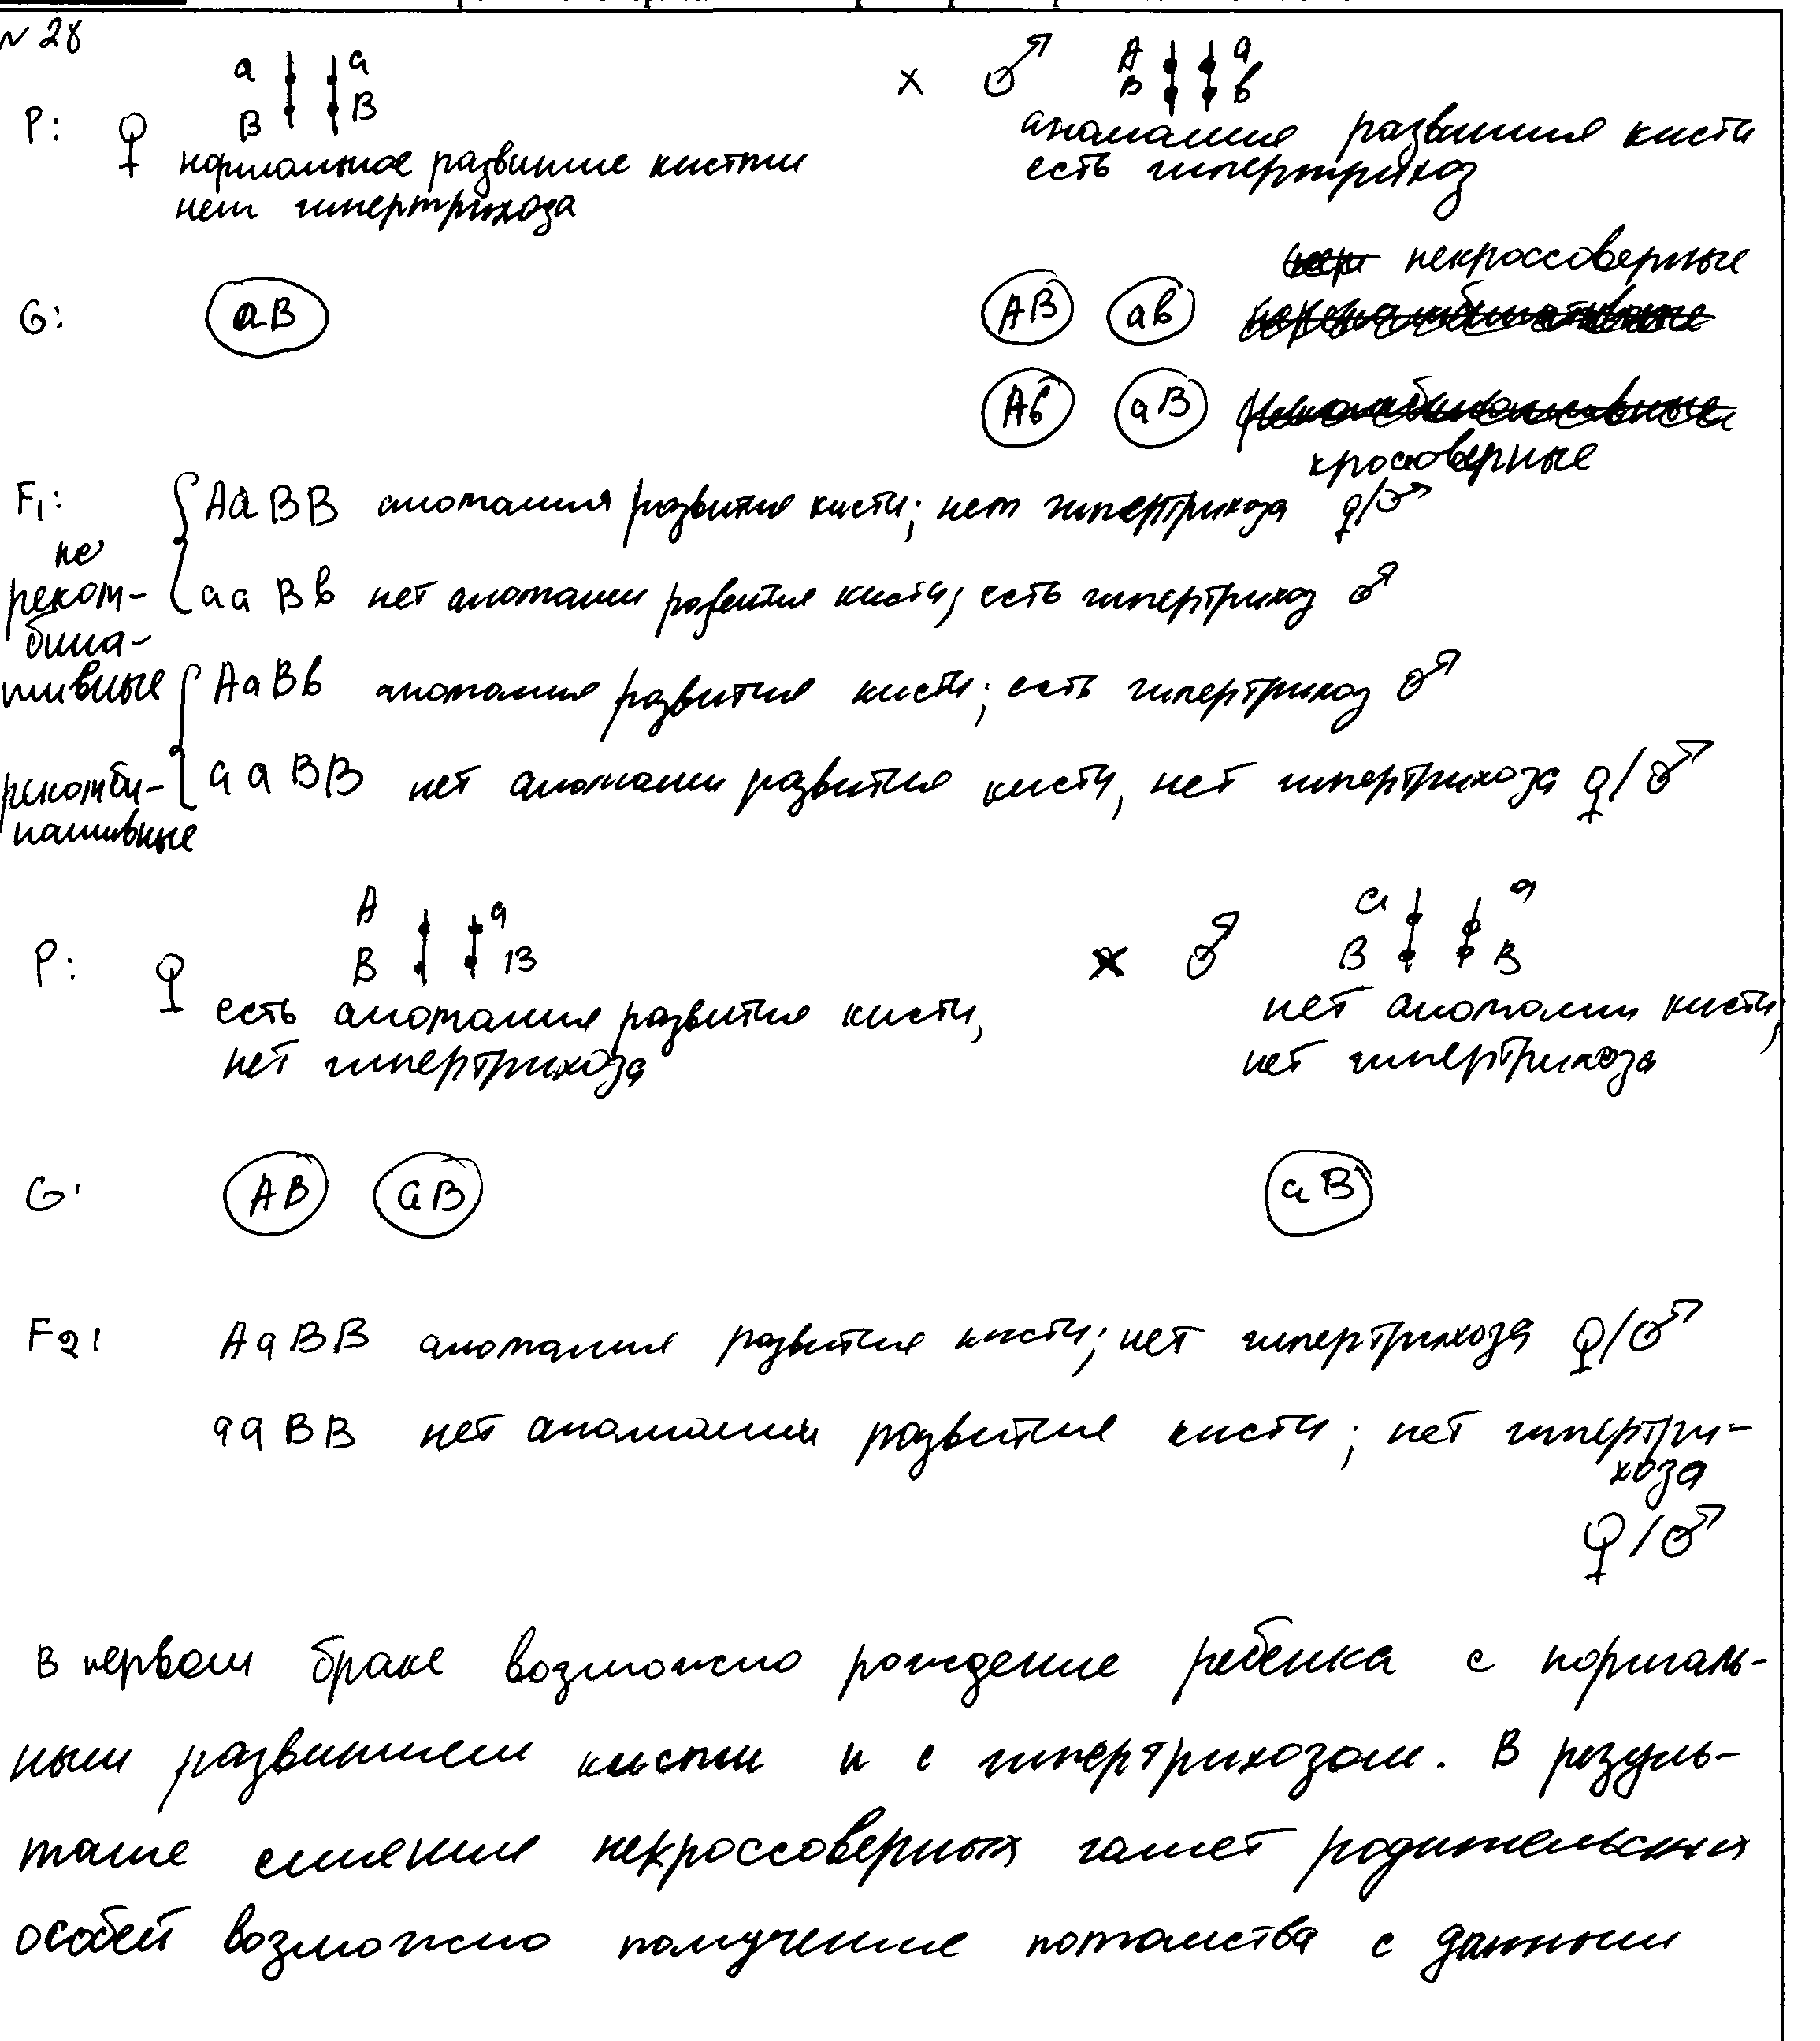 № 28
a a A a
P: ♀ B B × ♂ B b
нормальное развитие кисти
нет гипертрихоза
аномалия развития кисти
есть гипертрихоз
некроссоверные
G: aB AB ab
Ab aB
кроссоверные
F1: AaBB аномалия развития кисти; нет гипертрихоза ♀/♂
не
реком-
бина-
тивные
aaBb нет аномалии развития кисти; есть гипертрихоз ♂
AaBb аномалия развития кисти; есть гипертрихоз ♂
рекомби-
нативные
aaBB нет аномалии развития кисти, нет гипертрихоза ♀/♂
A a a a
P: ♀ B B × ♂ B B
есть аномалия развития кисти,
нет гипертрихоза
нет аномалии кисти,
нет гипертрихоза
G: AB aB aB
F2: AaBB аномалия развития кисти; нет гипертрихоза ♀/♂
aaBB нет аномалии развития кисти; нет гипертри-
хоза
♀/♂
В первом браке возможно рождение ребенка с нормаль-
ным развитием кисти и с гипертрихозом. В резуль-
тате слияния некроссоверных гамет родительских
особей возможно получение потомства с данными